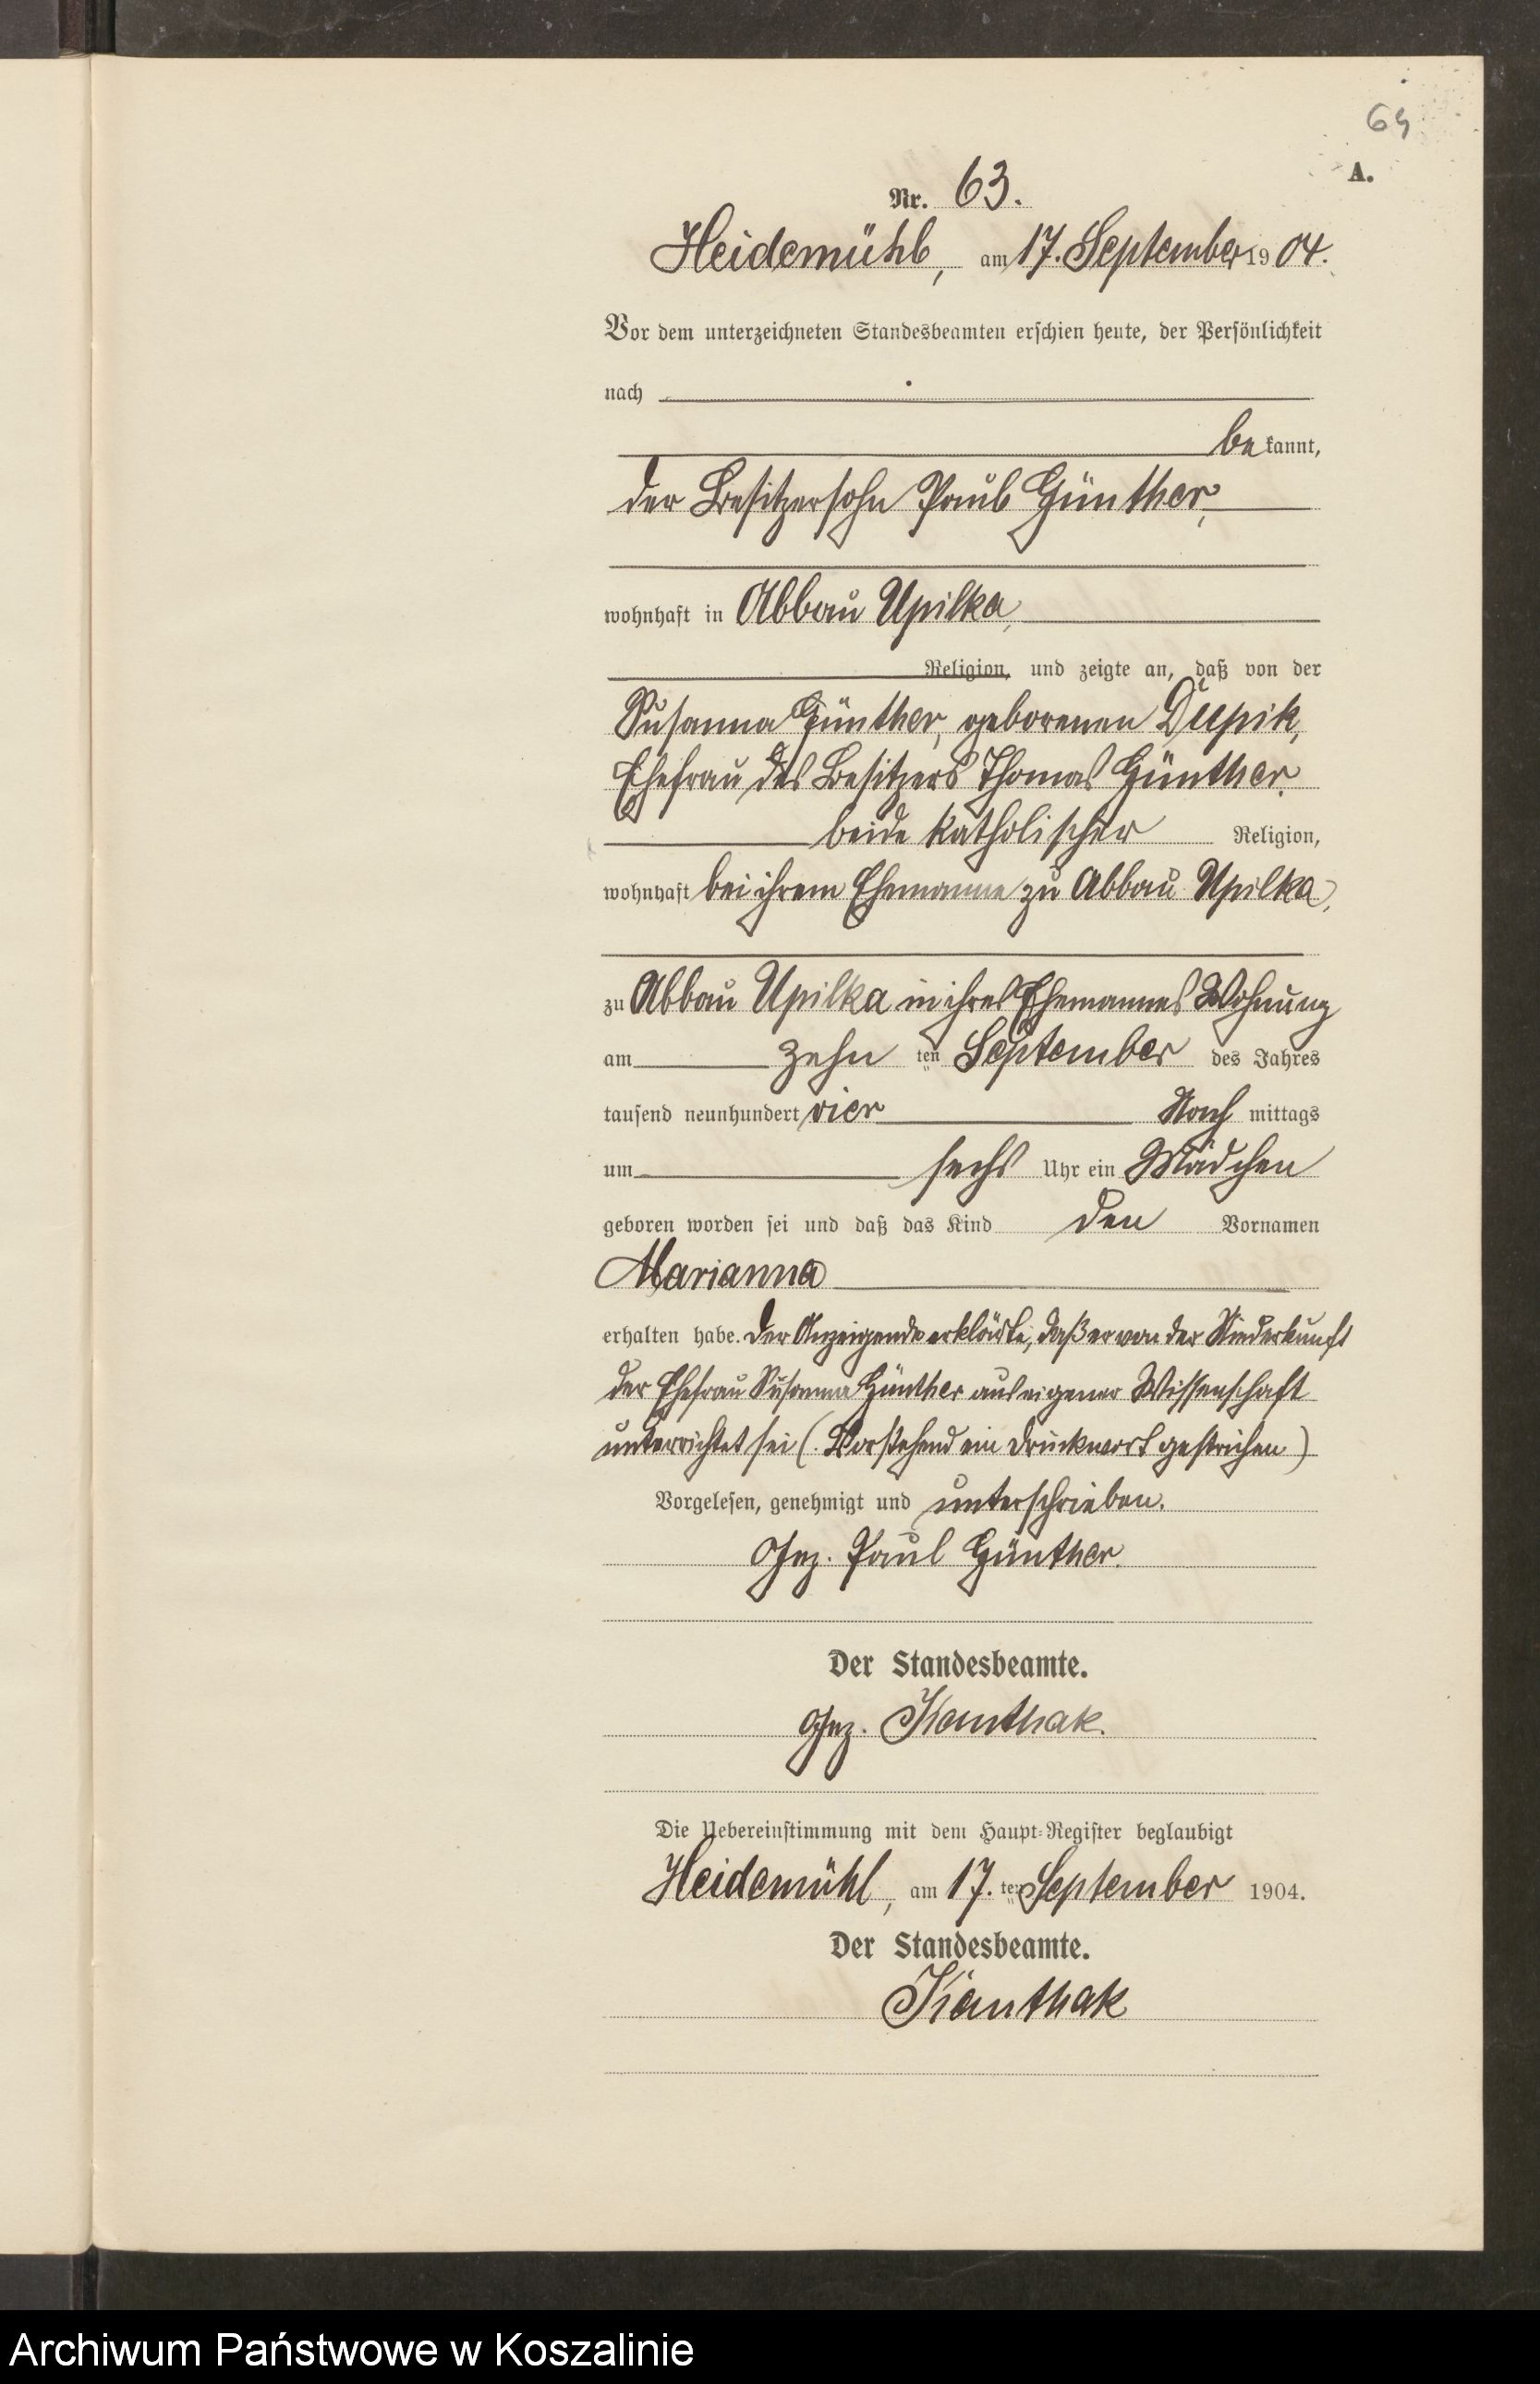 69
A.
Nr. 63.
Heidemühl, am 17. September 1904.
Vor dem unterzeichneten Standesbeamten erschien heute, der Persönlichkeit
nach
bekannt,
der Besitzersohn Paul Günther,
wohnhaft in Abbau Upilka,
Religion, und zeigte an, daß von der
Susanna Günther, geborenen
Ehefrau des Besitzers Thomas Günther,
beide katholischer Religion,
wohnhaft bei ihrem Ehemanne zu Abbau Upilka,
zu Abbau Upilka in ihres Ehemannes Wohnung
am zehn ten September des Jahres
tausend neunhundert vier Nach mittags
um sechs Uhr ein Mädchen
geboren worden sei und daß das Kind den Vornamen
Marianna
erhalten habe. Der Anzeigende erklärte, daß er von der Niederkunft
der Ehefrau Susanna Günther aus eigener Wissenschaft
unterrichtet sei (. Vorstehend ein Druckwort gestrichen)
Vorgelesen, genehmigt und unterschrieben.
Gez. Paul Günther.
Der Standesbeamte.
Gez. Kanthak.
Die Uebereinstimmung mit dem Haupt-Register beglaubigt
Heidemühl, am 17. ten September 1904.
Der Standesbeamte.
Kanthak
Archiwum Państwowe w Koszalinie